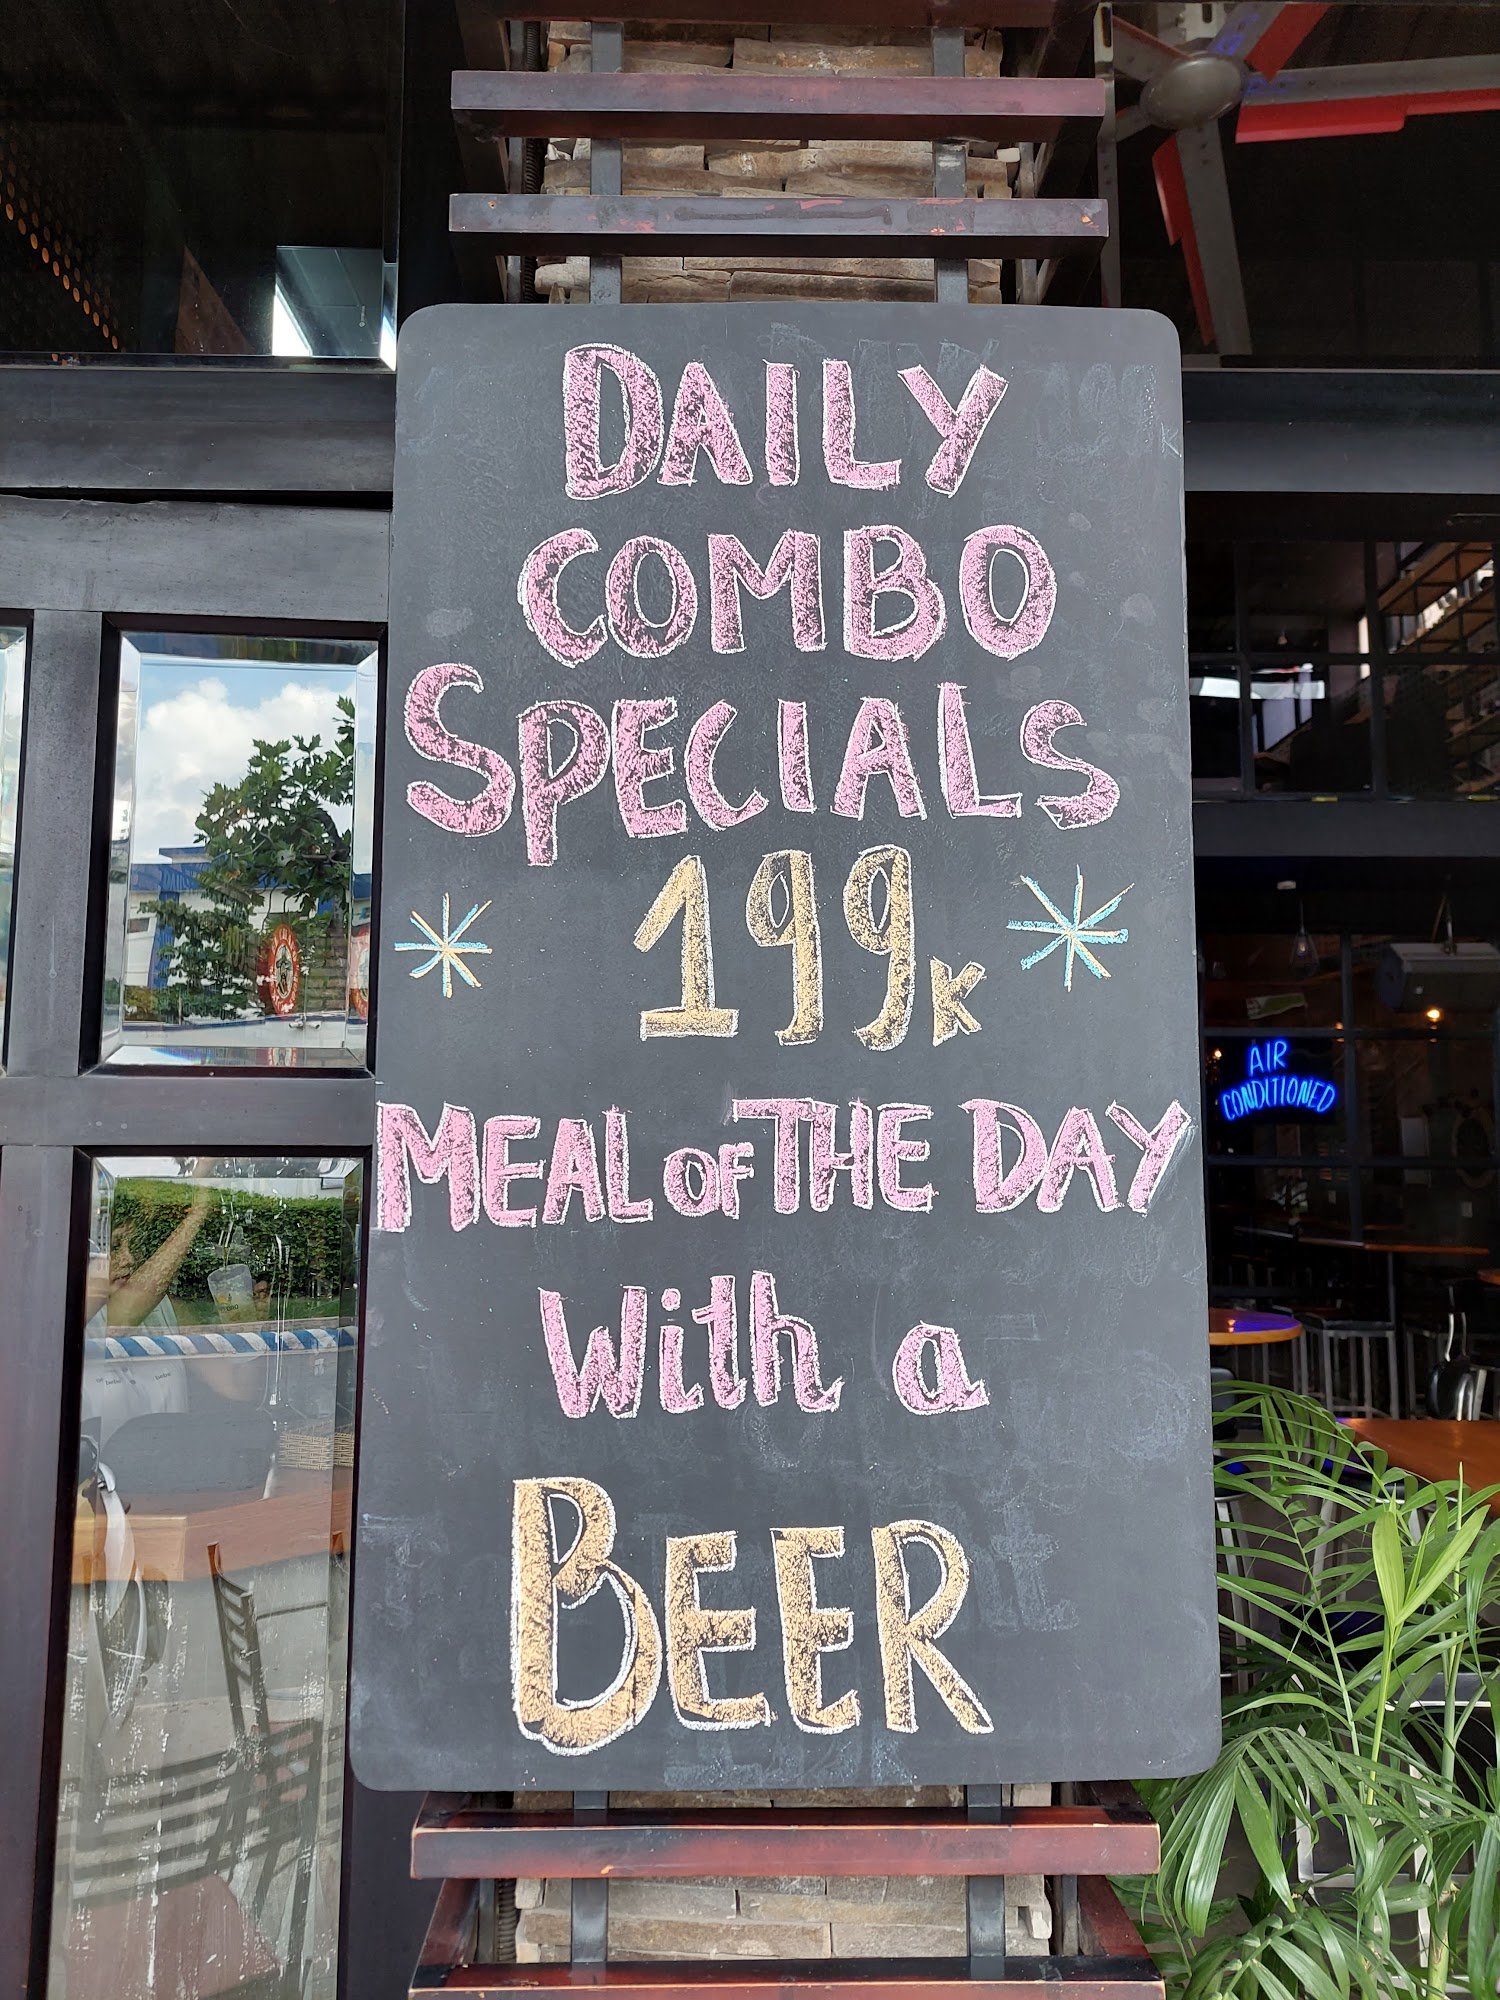 DAILY
COMBO
SPECIALS
199K
MEAL OF THE DAY
with a
BEER
AIR
CONDITIONED